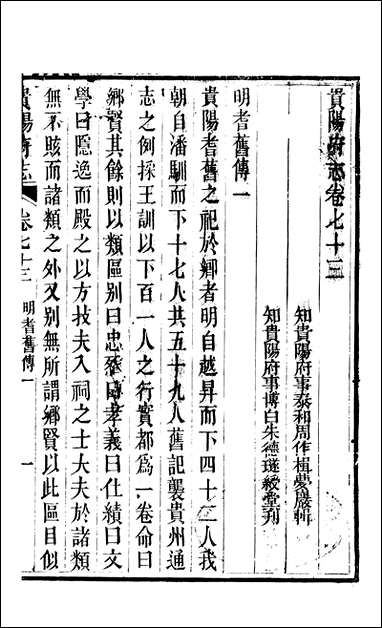 貴陽府志卷七十三
知貴陽府事泰和周作楫夢巖輯
知貴陽府事博白朱德璲綬堂刊
明耆舊傳一
貴陽耆舊之祀於鄉者明自越昇而下四十二人我
朝自潘馴而下十七人共五十九人舊記襲貴州通
志之例採王訓以下百一人之行實都為一卷命曰
鄉賢其餘則以類區別曰忠烝曰孝義曰仕績曰文
學曰隱逸而殿之以方技夫入祠之士大夫於諸類
無不賅而諸類之外又別無所謂鄉賢以此區目似
貴陽府志
卷七十三
明耆舊傳一
一